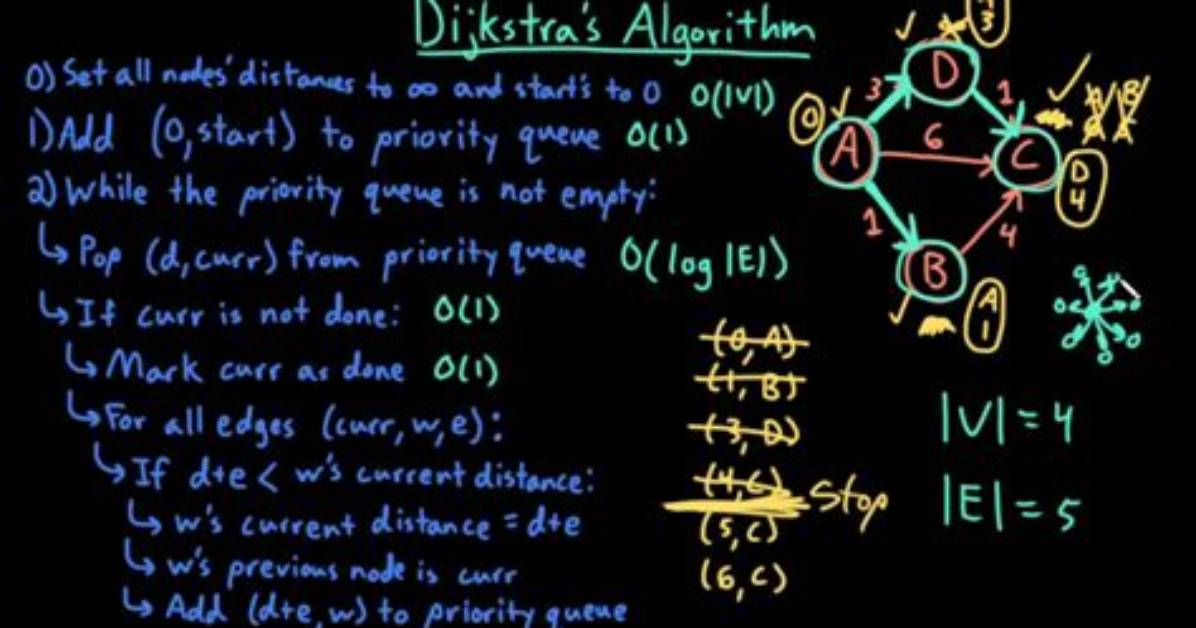 Dijkstra's Algorithm
0) Set all nodes' distances to ∞ and start's to 0 O(|V|)
1) Add (0, start) to priority queue O(1)
2) While the priority queue is not empty:
↳ Pop (d, curr) from priority queue O(log |E|)
↳ If curr is not done: O(1)
↳ Mark curr as done O(1)
↳ For all edges (curr, w, e):
↳ If d+e < w's current distance:
↳ w's current distance = d+e
↳ w's previous node is curr
↳ Add (d+e, w) to priority queue
3
D
3
1
0
A
6
C
D
4
1
4
B
A
1
(0, A)
(1, B)
(3, D)
(4, C)
Stop
(5, C)
(6, C)
|V| = 4
|E| = 5